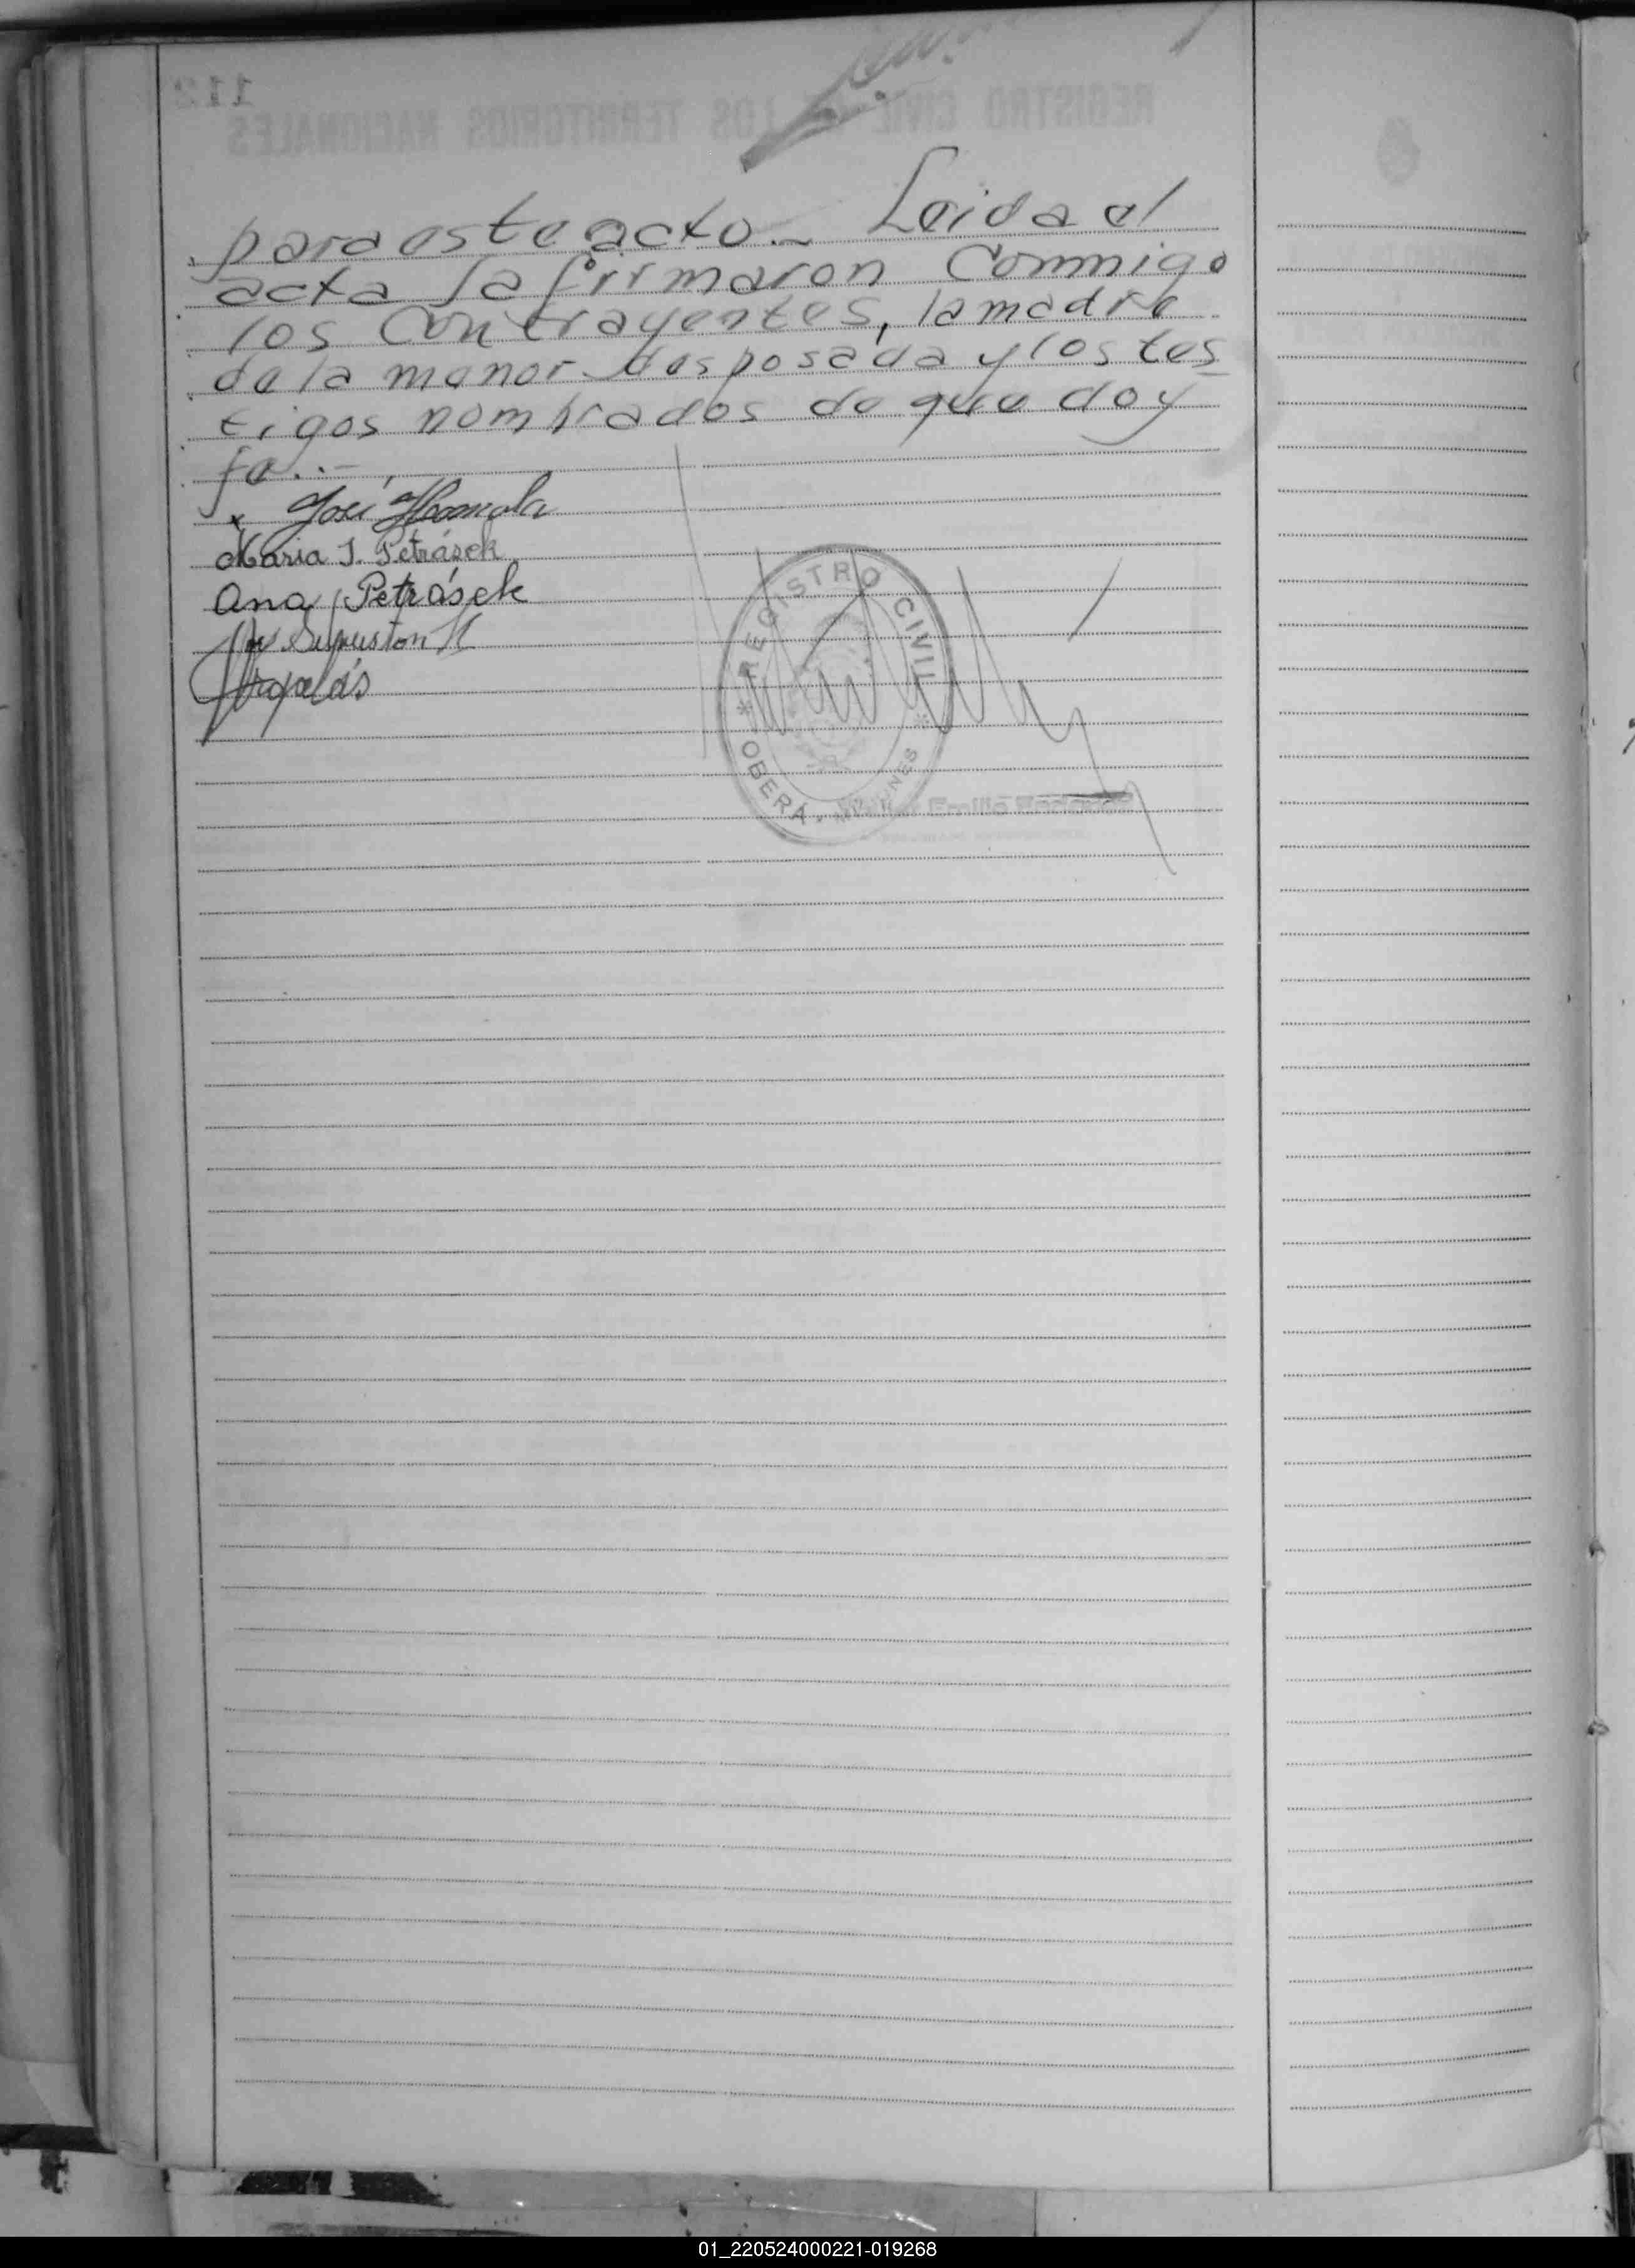 para este acto.- Leida el
acta la firmaron conmigo
los contrayentes, la madre
de la menor desposada y los tes
tigos nombrados de que doy
fe.-
José
Maria J. Petrásek
Ana Petrásek
REGISTRO CIVIL
OBERÁ - MISIONES
Emilio
01_220524000221-019268